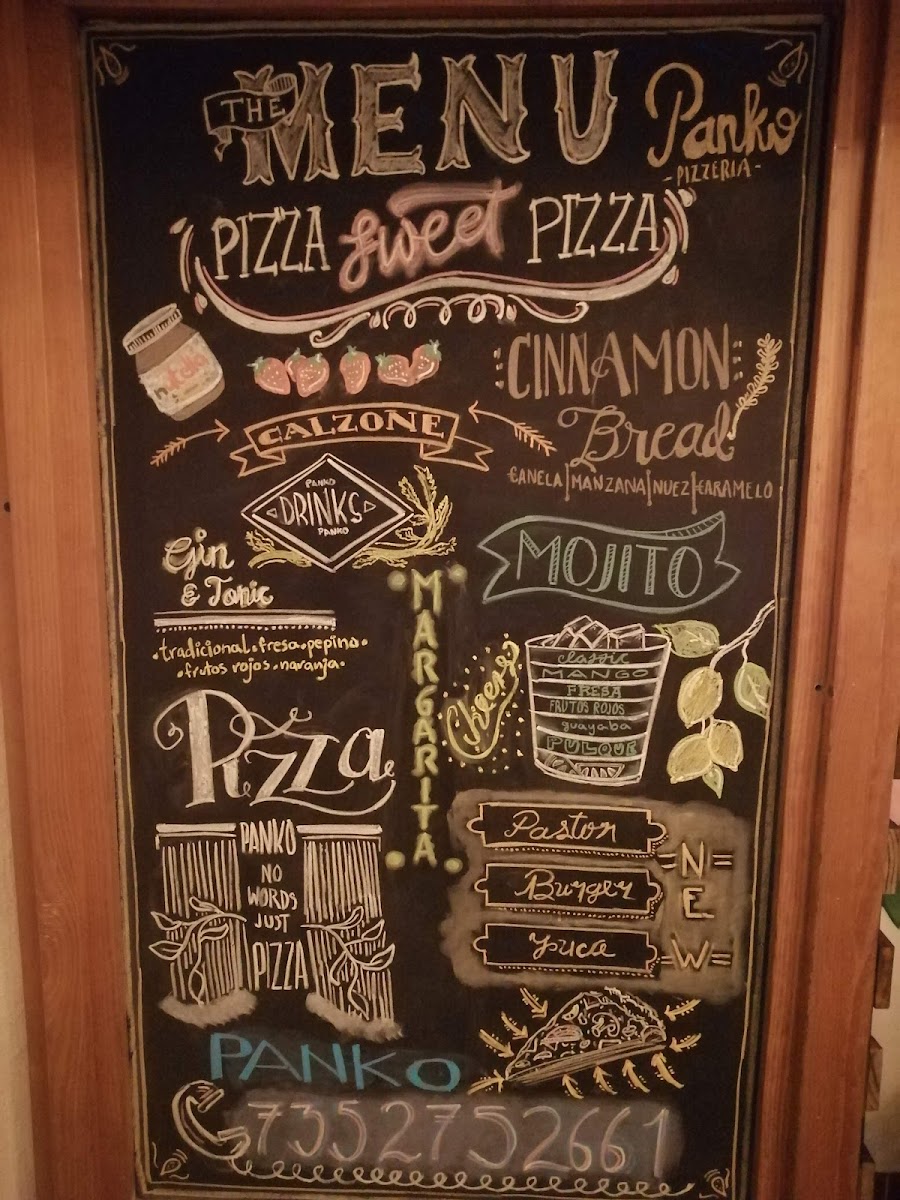 THE MENU
Panko
- PIZZERIA -
PIZZA sweet PIZZA
nutella
CINNAMON
Bread
CANELA|MANZANA|NUEZ|CARAMELO
CALZONE
PANKO
DRINKS
PANKO
Gin
& Tonic
•tradicional•fresa•pepino•
•frutos rojos•naranja•
MARGARITA
MOJITO
Cheers
classic
MANGO
FRESA
FRUTOS ROJOS
guayaba
PULQUE
Pizza
PANKO
NO
WORDS
JUST
PIZZA
Pastor
Burger
Yuca
=NEW=
PANKO
7352752661